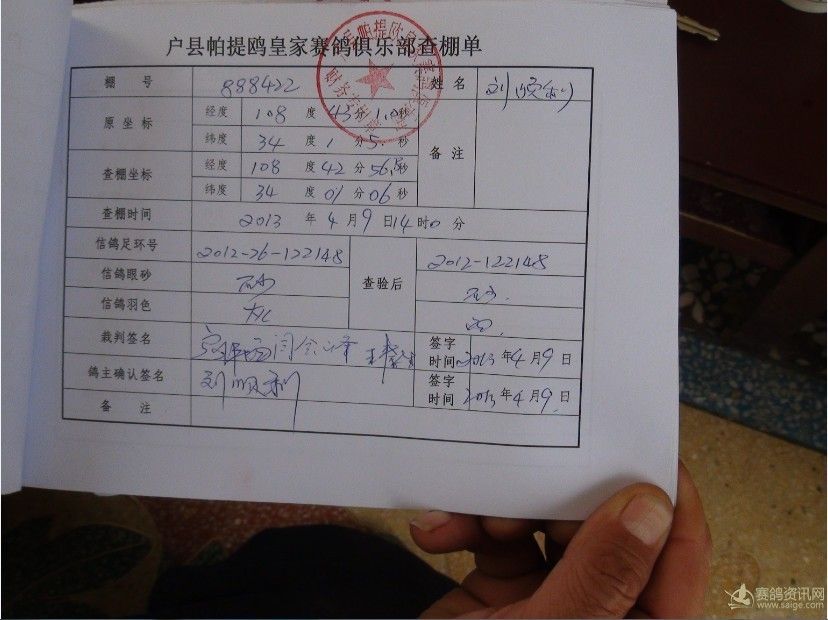 户县帕提鸥皇家赛鸽俱乐部查棚单
棚 号 888422 姓 名 刘顺利
原坐标 经度 108 度 43 分 1.0 秒 备 注
纬度 34 度 1 分 5 秒
查棚坐标 经度 108 度 42 分 56.8 秒
纬度 34 度 01 分 06 秒
查棚时间 2013 年 4 月 9 日 14 时 0 分
信鸽足环号 2012-26-122148 查验后 2012-122148
信鸽眼砂 砂
信鸽羽色
裁判签名 签字时间 2013 年 4 月 9 日
鸽主确认签名 刘顺利 签字时间 2013 年 4 月 9 日
备 注
赛鸽资讯网
www.saige.com